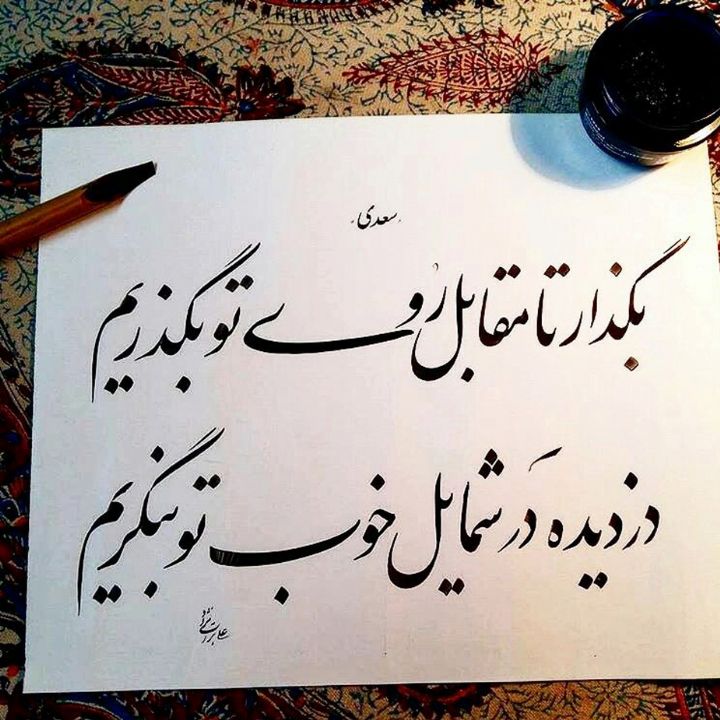 سعدی
بگذار تا مقابل رُوی تو بگذریم
دزدیده دَر شمایل خوب تو بنگریم